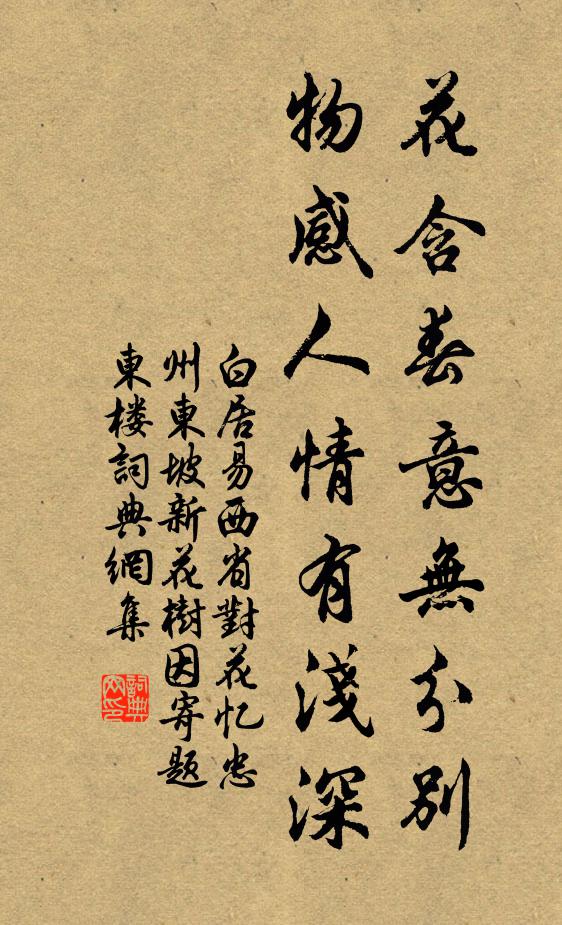 花含春意無分別
物感人情有淺深
白居易西省對花忆忠
州東坡新花樹因寄题
東楼詞典網集
詞典